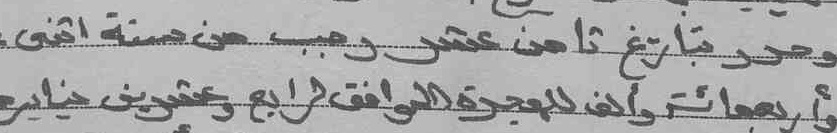 وحرر بتاريخ ثامن عشر رجب من سنة اثنى
وأربعمائة وألف للهجرة الموافق لرابع وعشرين يناير